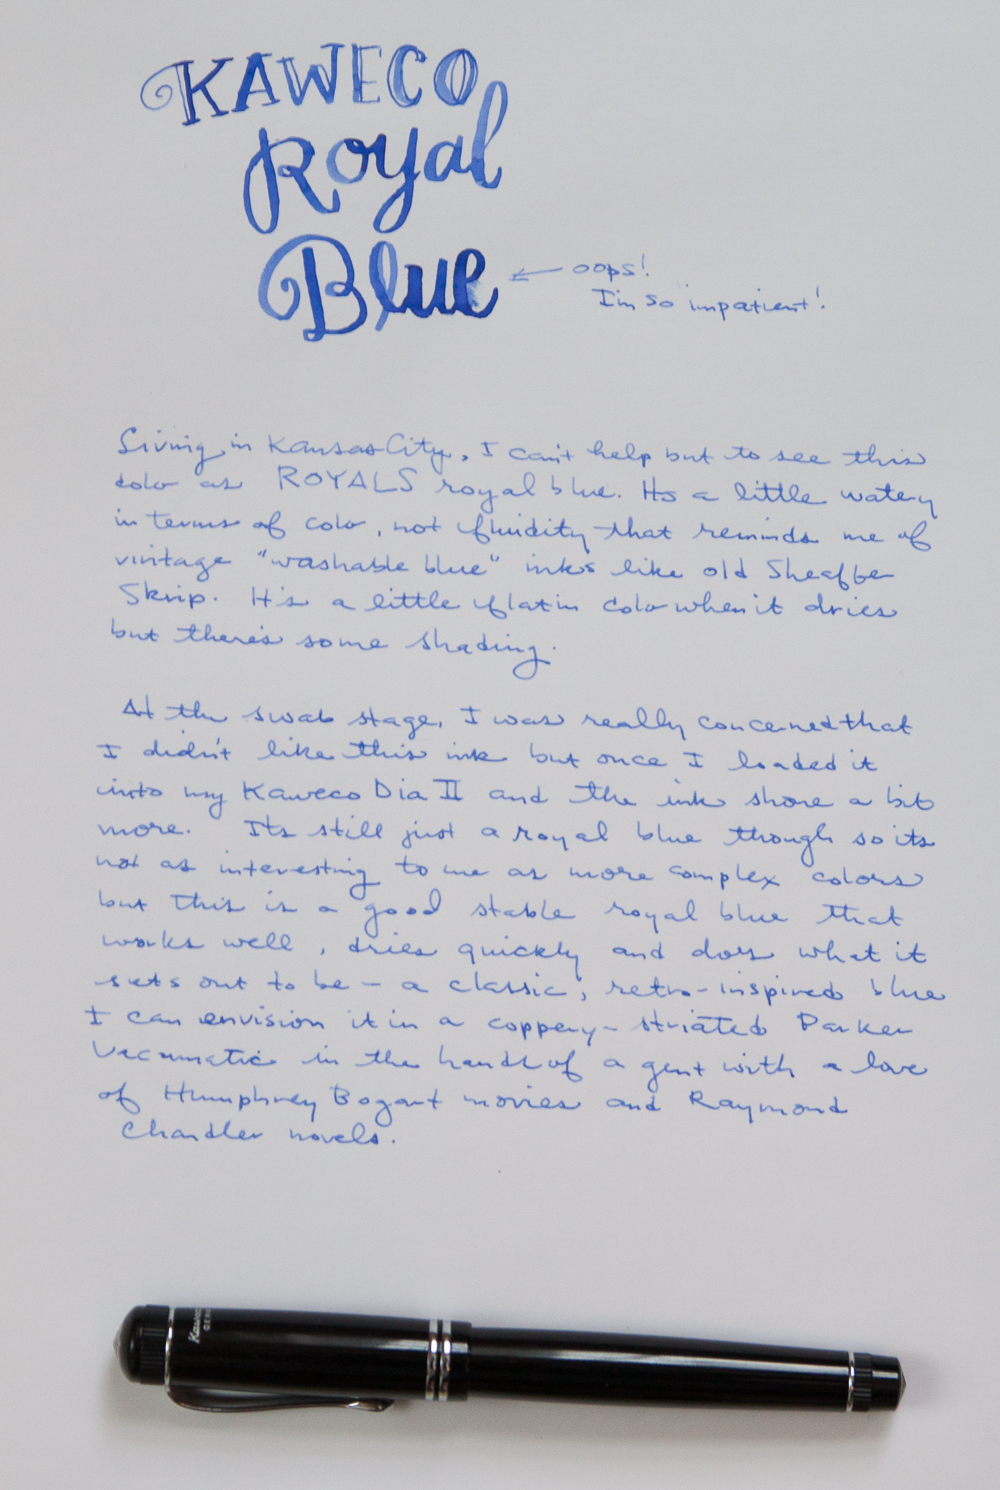 KAWECO
Royal
Blue
← oops!
I'm so impatient!
Living in Kansas City, I can't help but to see this
color as ROYALS royal blue. Its a little watery
in terms of color, not fluidity that reminds me of
vintage "washable blue" inks like old Sheaffer
Skrip. It's a little flat in color when it dries
but there's some shading.
At the swab stage, I was really concerned that
I didn't like this ink but once I loaded it
into my Kaweco Dia II and the ink shone a bit
more. Its still just a royal blue though so its
not as interesting to me as more complex colors
but this is a good stable royal blue that
works well, dries quickly and does what it
sets out to be - a classic, retro-inspired blue
I can envision it in a coppery-striated Parker
Vacumatic in the hands of a gent with a love
of Humphrey Bogart movies and Raymond
Chandler novels.
Kaweco